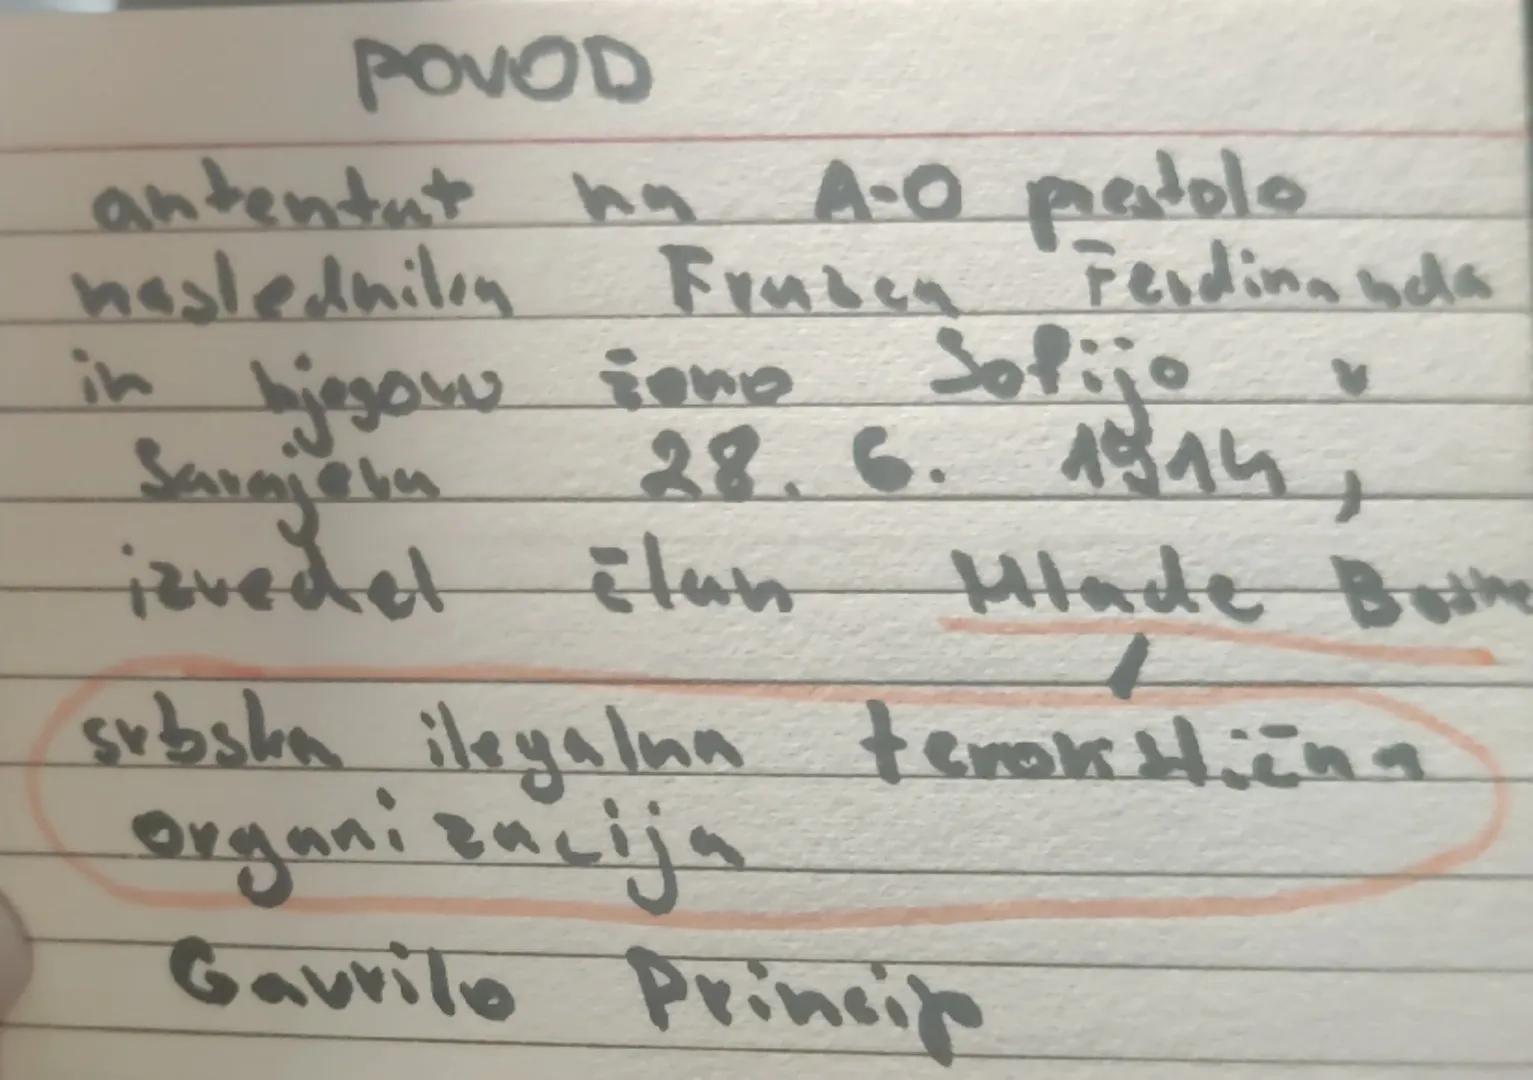 POVOD
antentat na A-O prestolo
naslednika Franca Ferdinanda
in njegovo ženo Sofijo v
Sarajevu 28. 6. 1914,
izvedel član Mlade Bosne
srbska ilegalna teroristična
organizacija
Gavrilo Princip